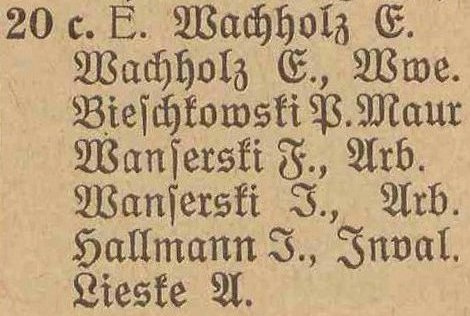 20 c. E. Wachholz E.
Wachholz E., Wwe.
Bieschkowski P. Maur
Wanserski F., Arb.
Wanserski J., Arb.
Hallmann J., Inval.
Lieske A.